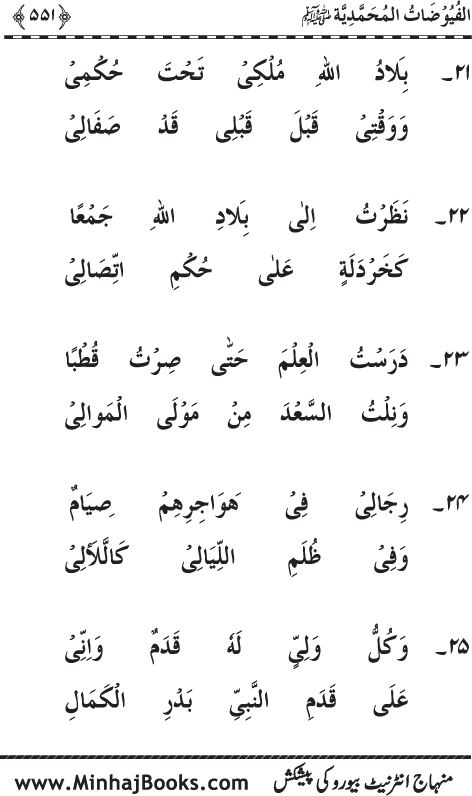 الفُيُوْضَاتُ المُحَمَّدِيَّة ﷺ ﴿۵۵۱﴾
۲۱۔ بِلَادُ اللهِ مُلْکِیْ تَحْتَ حُکْمِیْ
وَوَقْتِیْ قَبْلَ قَبْلِی قَدْ صَفَالِیْ
۲۲۔ نَظَرْتُ اِلٰی بِلَادِ اللهِ جَمْعًا
کَخَرْدَلَةٍ عَلٰی حُکْمِ اتِّصَالِیْ
۲۳۔ دَرَسْتُ الْعِلْمَ حَتّٰی صِرْتُ قُطْبًا
وَنِلْتُ السَّعْدَ مِنْ مَوْلَی الْمَوالِیْ
۲۴۔ رِجَالِیْ فِیْ هَوَاجِرِهِمْ صِیَامٌ
وَفِیْ ظُلَمِ اللَّیَالِیْ کَالَّلأَلِیْ
۲۵۔ وَکُلُّ وَلِیٍّ لَهٗ قَدَمٌ وَاِنِّیْ
عَلَی قَدَمِ النَّبِیِّ بَدْرِ الْکَمَالِ
منہاج انٹرنیٹ بیورو کی پیشکش www.MinhajBooks.com